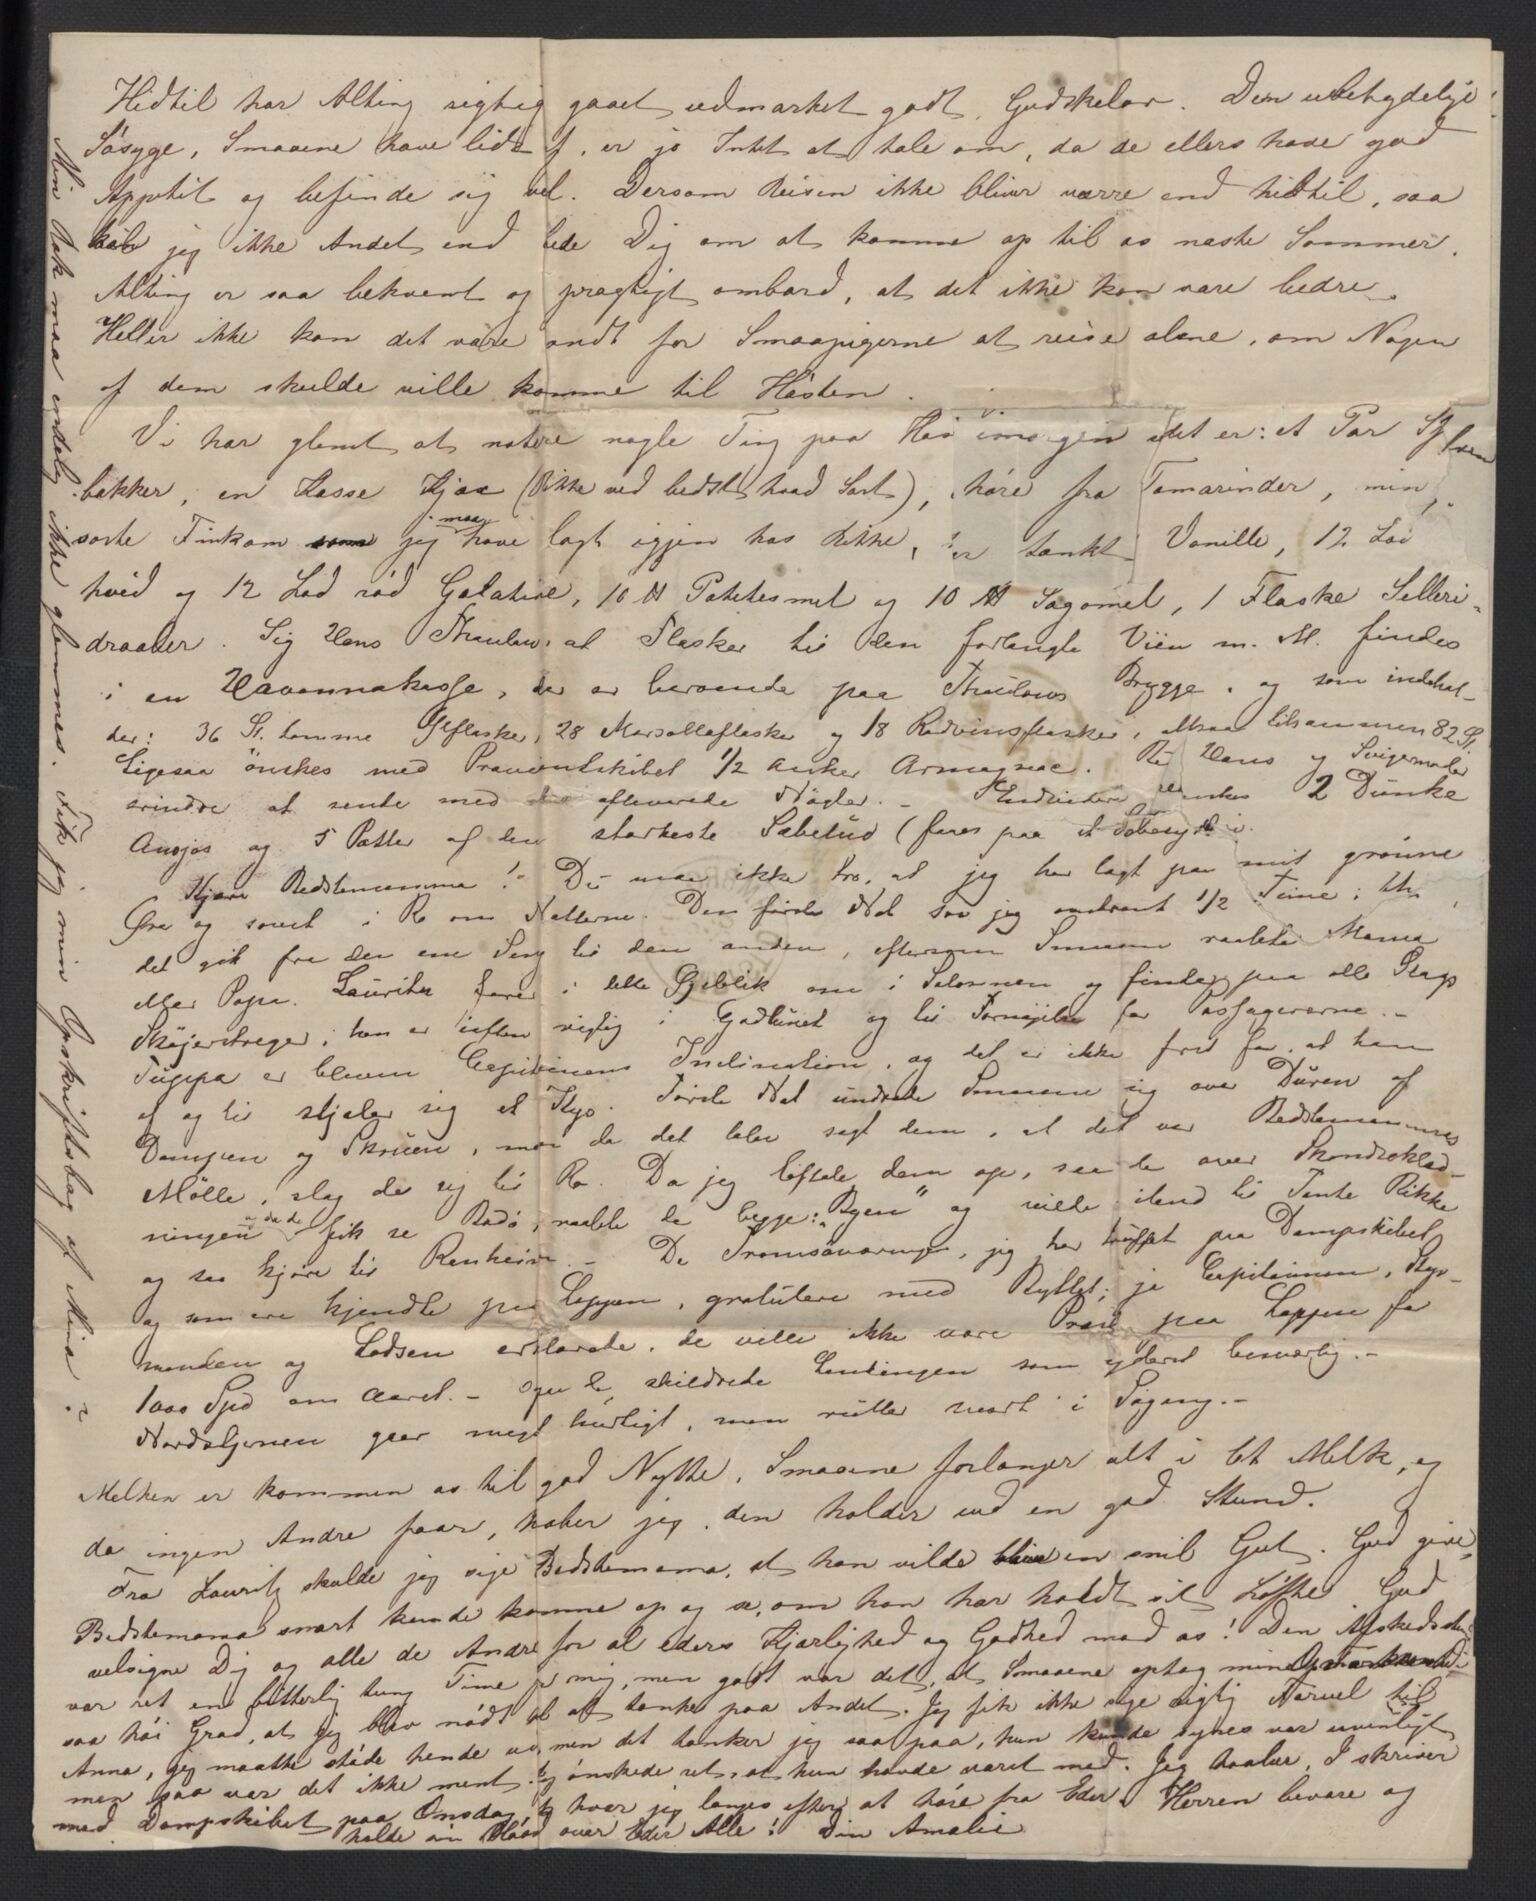 Hidtil har Alting rigtig gaaet udmærket godt, Gudskelov. Den ubetydelige
Søsyge, Smaaene have lidt af, er jo Intet at tale om, da de ellers have god
Appetit og befinde sig vel. Dersom Reisen ikke bliver værre end hidtil, saa
kan jeg ikke Andet end bede Dig om at komme op til os næste Sommer.
Alting er saa bekvemt og prægtigt ombord, at det ikke kan være bedre.
Heller ikke kan det være ondt for Smaapigerne at reise alene, om Nogen
af dem skulde ville komme til Høsten.
Vi har glemt at notere nogle Ting paa
et Par
bakker, en Kasse (Rikke ved bedst hvad Sort), fra Tamarinder, min
sorte Finkam som jeg maa have lagt igjen hos Rikke, Vanille, 12 Lod
hvid og 12 Lod rød Gelatine, 10 ℔ Potetesmel og 10 ℔ Sagomel, 1 Flaske Selleri-
draaber. Sig Hans Thaulow at Flasker til den forlangte Viin m. M. findes
i en Havannakasse, der er beroende paa Thaulows Brygge, og som indehol-
der: 36 St. tomme Ølflasker, 28 Marsallaflasker og 18 Rødvinsflasker, altsaa tilsammen 82 St.
Ligesaa ønskes med Provantskibet 1/2 Anker Armagnac. Hans og Svigermoder
erindre at sende med de Nøgler. – Endvidere ønskes 2 Dunke
Ansjos og 5 Potter af den stærkeste Sæbelud (faaes paa et Sæbesyderi).
Kjære Bedstemamma! Du maa ikke tro, at jeg har lagt paa mit grønne
Øre og sovet i Ro om Nætterne. Den første Nat sov jeg omtrent 1/2 Time;
det gik fra den ene Seng til den anden, eftersom Smaaene raabte Mama
eller Papa. Lauritz farer i dette Øjeblik om i Salonnen og finder paa alle Slags
Skøjerstreger; han er i aften rigtig i Godlunet og til Fornøjelse for Passagererne. –
Tuppa er bleven Capitainens Inclination, og det er ikke frit for, at han
af og til stjæler sig et Kys. Første Nat undrede Smaaene sig over Duren af
Dampen og Skruen, men da det blev sagt dem, at det var Bedstemammas
Mølle, slog de sig til Ro. Da jeg løftede dem op, saa de over Skandseklæd-
ningen og da de fik se Bodø, raabte de begge: „Byen“ og vilde iland til Tante Rikke
og saa kjøre til Rønheim. – De Tromsøværinger, jeg har truffet paa Dampskibet
og som ere kjendte paa Loppen, gratulere med Byttet; ja Capitainen, Styr-
manden og Lodsen erklærede, de ville ikke være Præst paa Loppen for
1000 Spd om Aaret. – Ogsaa de skildrede Landingen som yderst besværlig. –
Nordstjernen gaar meget hurtigt, men ruller svært i Søgang. –
Melken er kommen os til god Nytte, Smaaene forlanger alt i Et Melk, og
da ingen Andre faar, haaber jeg, den holder ud en god Stund.
Fra Lauritz skulde jeg sige Bedstemama, at han vilde blive en snil Gut. Gud give,
Bedstemama snart kunde komme op og se, om han har holdt sit Løfte. Gud
velsigne Dig og alle de Andre for al eders Kjærlighed og Godhed mod os! Den Afskedsstund
var ret en bitterlig tung Time for mig, men godt var det, at Smaaene optog min Opmærksomhed i
saa høi Grad, at jeg blev nødt til at tænke paa Andet. Jeg fik ikke sige rigtig Farvel til
Anna, jeg maatte støde hende væk, men det tænker jeg saa paa, hun kunde synes var uvenligt,
men saa var det ikke ment. Jeg ønskede ret, at hun havde været med. Jeg haaber, I skriver
med Dampskibet paa Onsdag, hvor jeg længes efter at høre fra Eder. Herren bevare og
holde sin Haand over Eder Alle! Din Amalie
Min Hat maa endelig ikke glemmes. Fik jeg min Opskriftsbog af Mina?